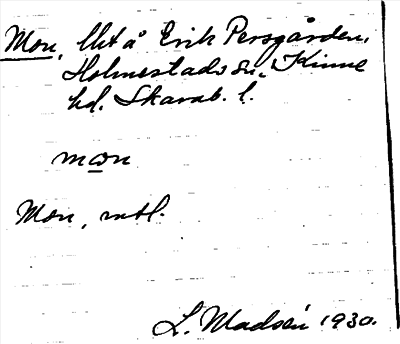 Mon, llt å Erik Persgården,
Holmestads sn, Kinne
hd. Skarab. l.
mon
Mon, mtl.
L. Madsén 1930.